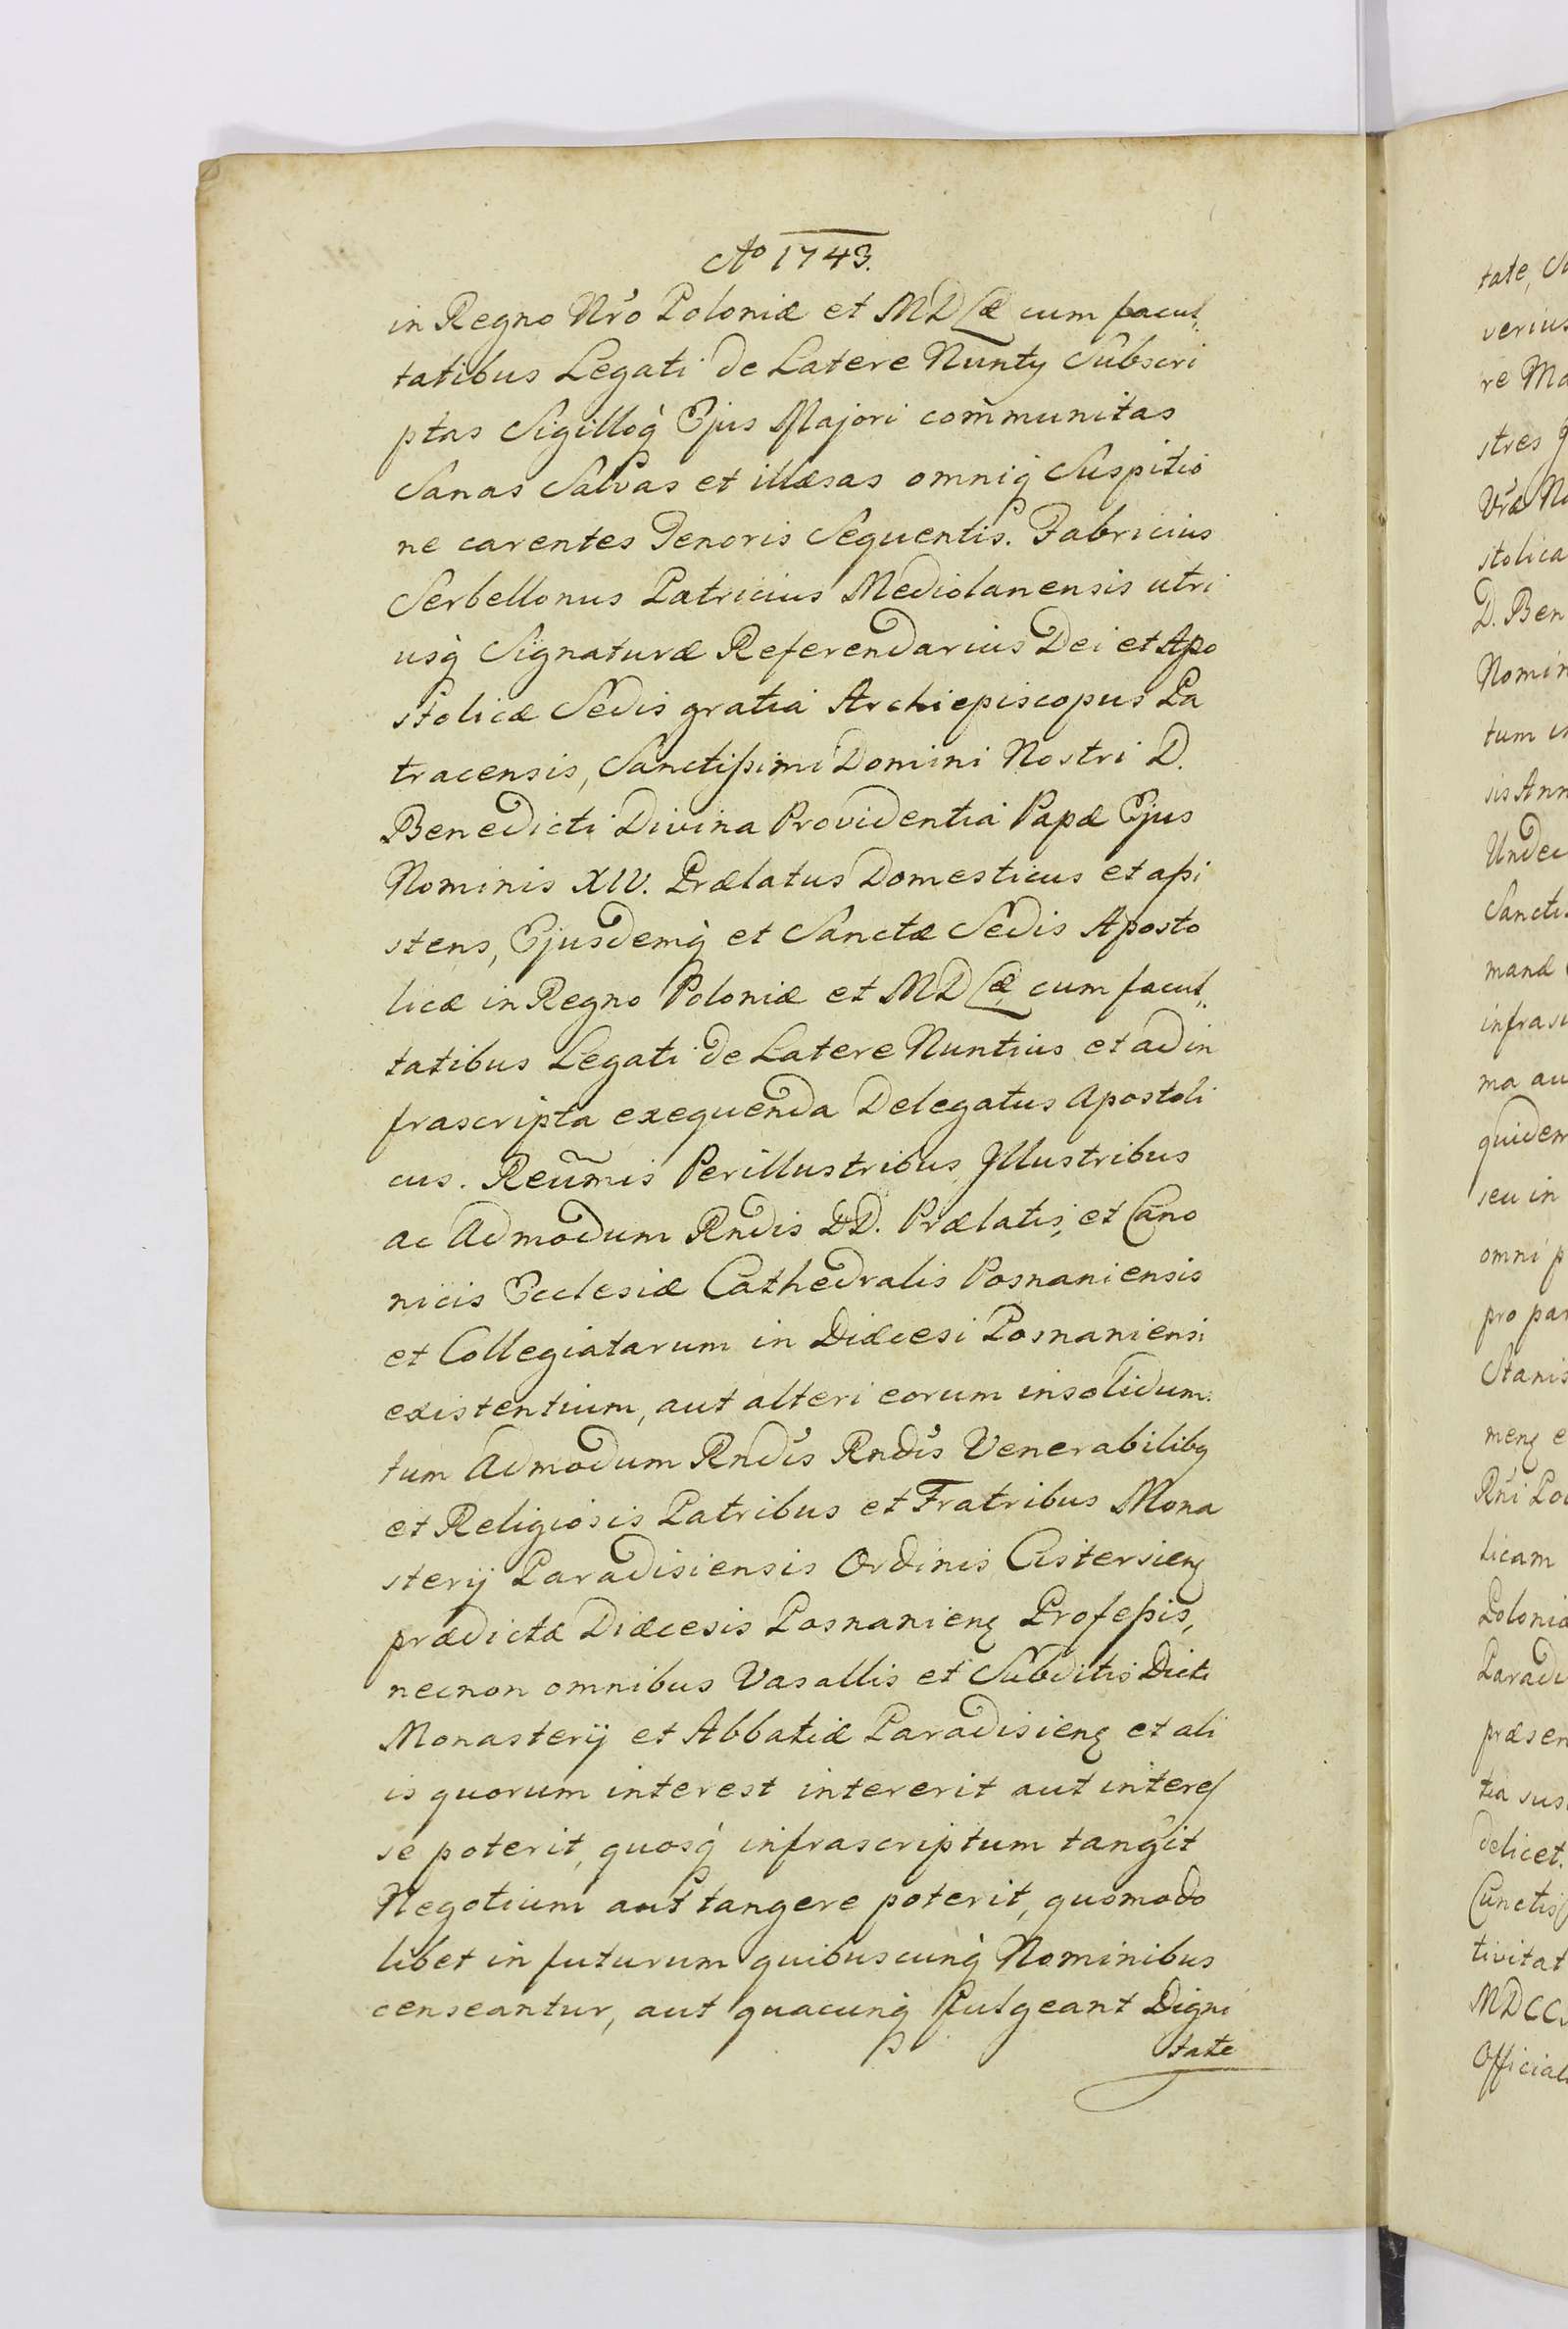 Ao 1743.
in Regno Nro Poloniæ et MDLæ cum facul„
tatibus Legati de Latere Nuntÿ Subscri
ptas Sigilloq̀ Ejus Majori com̄unitas
Sanas Salvas et illæsas omniq̀ Suspitio
ne carentes Tenoris Sequentis. Fabricius
Serbellonus Patricius Mediolanensis utri
usq̀ Signaturæ Referendarius Dei et Apo
stolicæ Sedis gratia Archiepiscopus Pa
tracensis, Sanctißimi Domini Nostri D.
Benedicti Divina Providentia Papæ Ejus
Nominis XIV. Prælatus Domesticus et aßi
stens, Ejusdemq̀ et Sanctæ Sedis Aposto
licæ in Regno Poloniæ et MDLæ cum facul„
tatibus Legati de Latere Nuntius et ad in
frascripta exequenda Delegatus Apostoli
cus. Reūmis Perillustribus Jllustribus
ac Admodum Rndis DD. Prælatis, et Cano
nicis Ecclesiæ Cathedralis Posnaniensis
et Collegiatarum in Diæcesi Posnaniensi
existentium, aut alteri eorum insolidum.
tum Admodum Rndis Rndis Venerabilibꝫ
et Religiosis Patribus et Fratribus Mona
sterÿ Paradisiensis Ordinis Cistersienꝫ
prædictæ Diæcesis Posnanienꝫ Profeßis,
necnon omnibus Vasallis et Subditis Dicti
Monasterÿ et Abbatiæ Paradisienꝫ et ali
is quorum interest intererit aut interes
se poterit, quosq̀ infrascriptum tangit
Negotium aut tangere poterit, quomodo
libet in futurum quibuscunq̀ Nominibus
censeantur, aut quacunq̀ fulgeant Digni
tate
tate,
verius
re Ma
stres
Vræ
stolica
D. Ben
Nomin
tum
sis Ann
Undec
Sanctis
manæ
infrasc
ma au
quidem
seu in
omni p
pro par
Stanis
menꝫ e
Rni Po
licam
Poloniæ
Paradi
præsen
tia sus
delicet.
Cunctis
tivitat
MDCC
Official